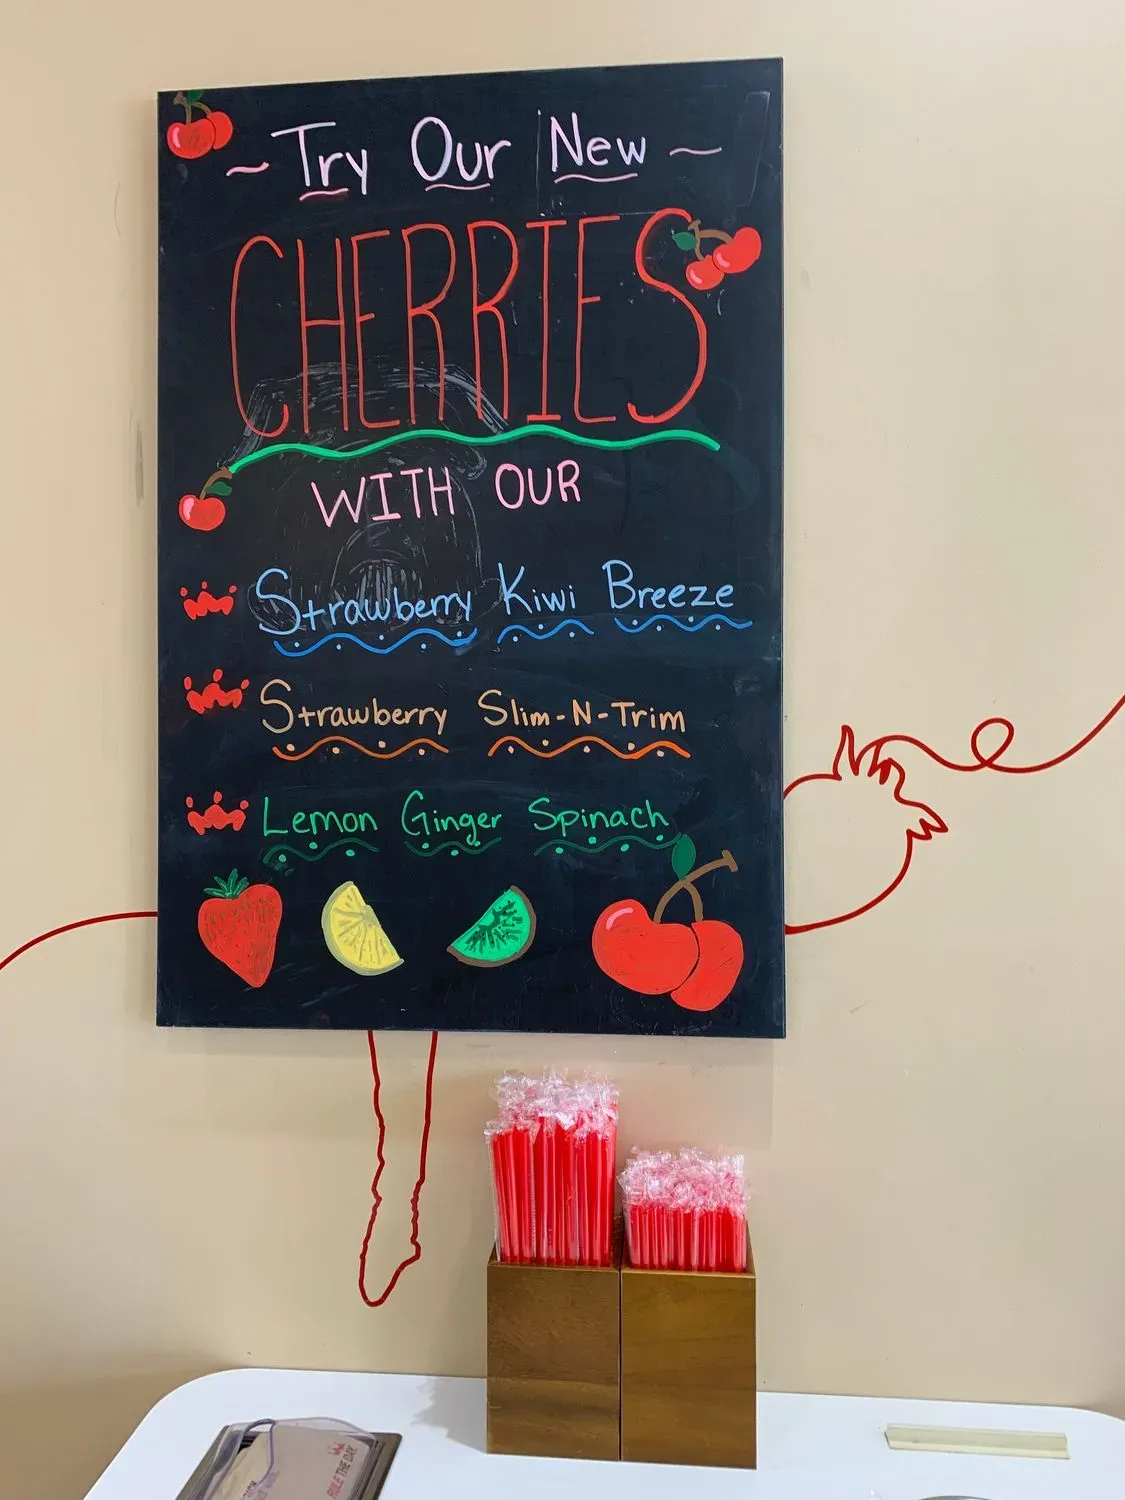 ~ Try Our New ~
CHERRIES
WITH OUR
Strawberry Kiwi Breeze
Strawberry Slim-N-Trim
Lemon Ginger Spinach
RULE THE DAY